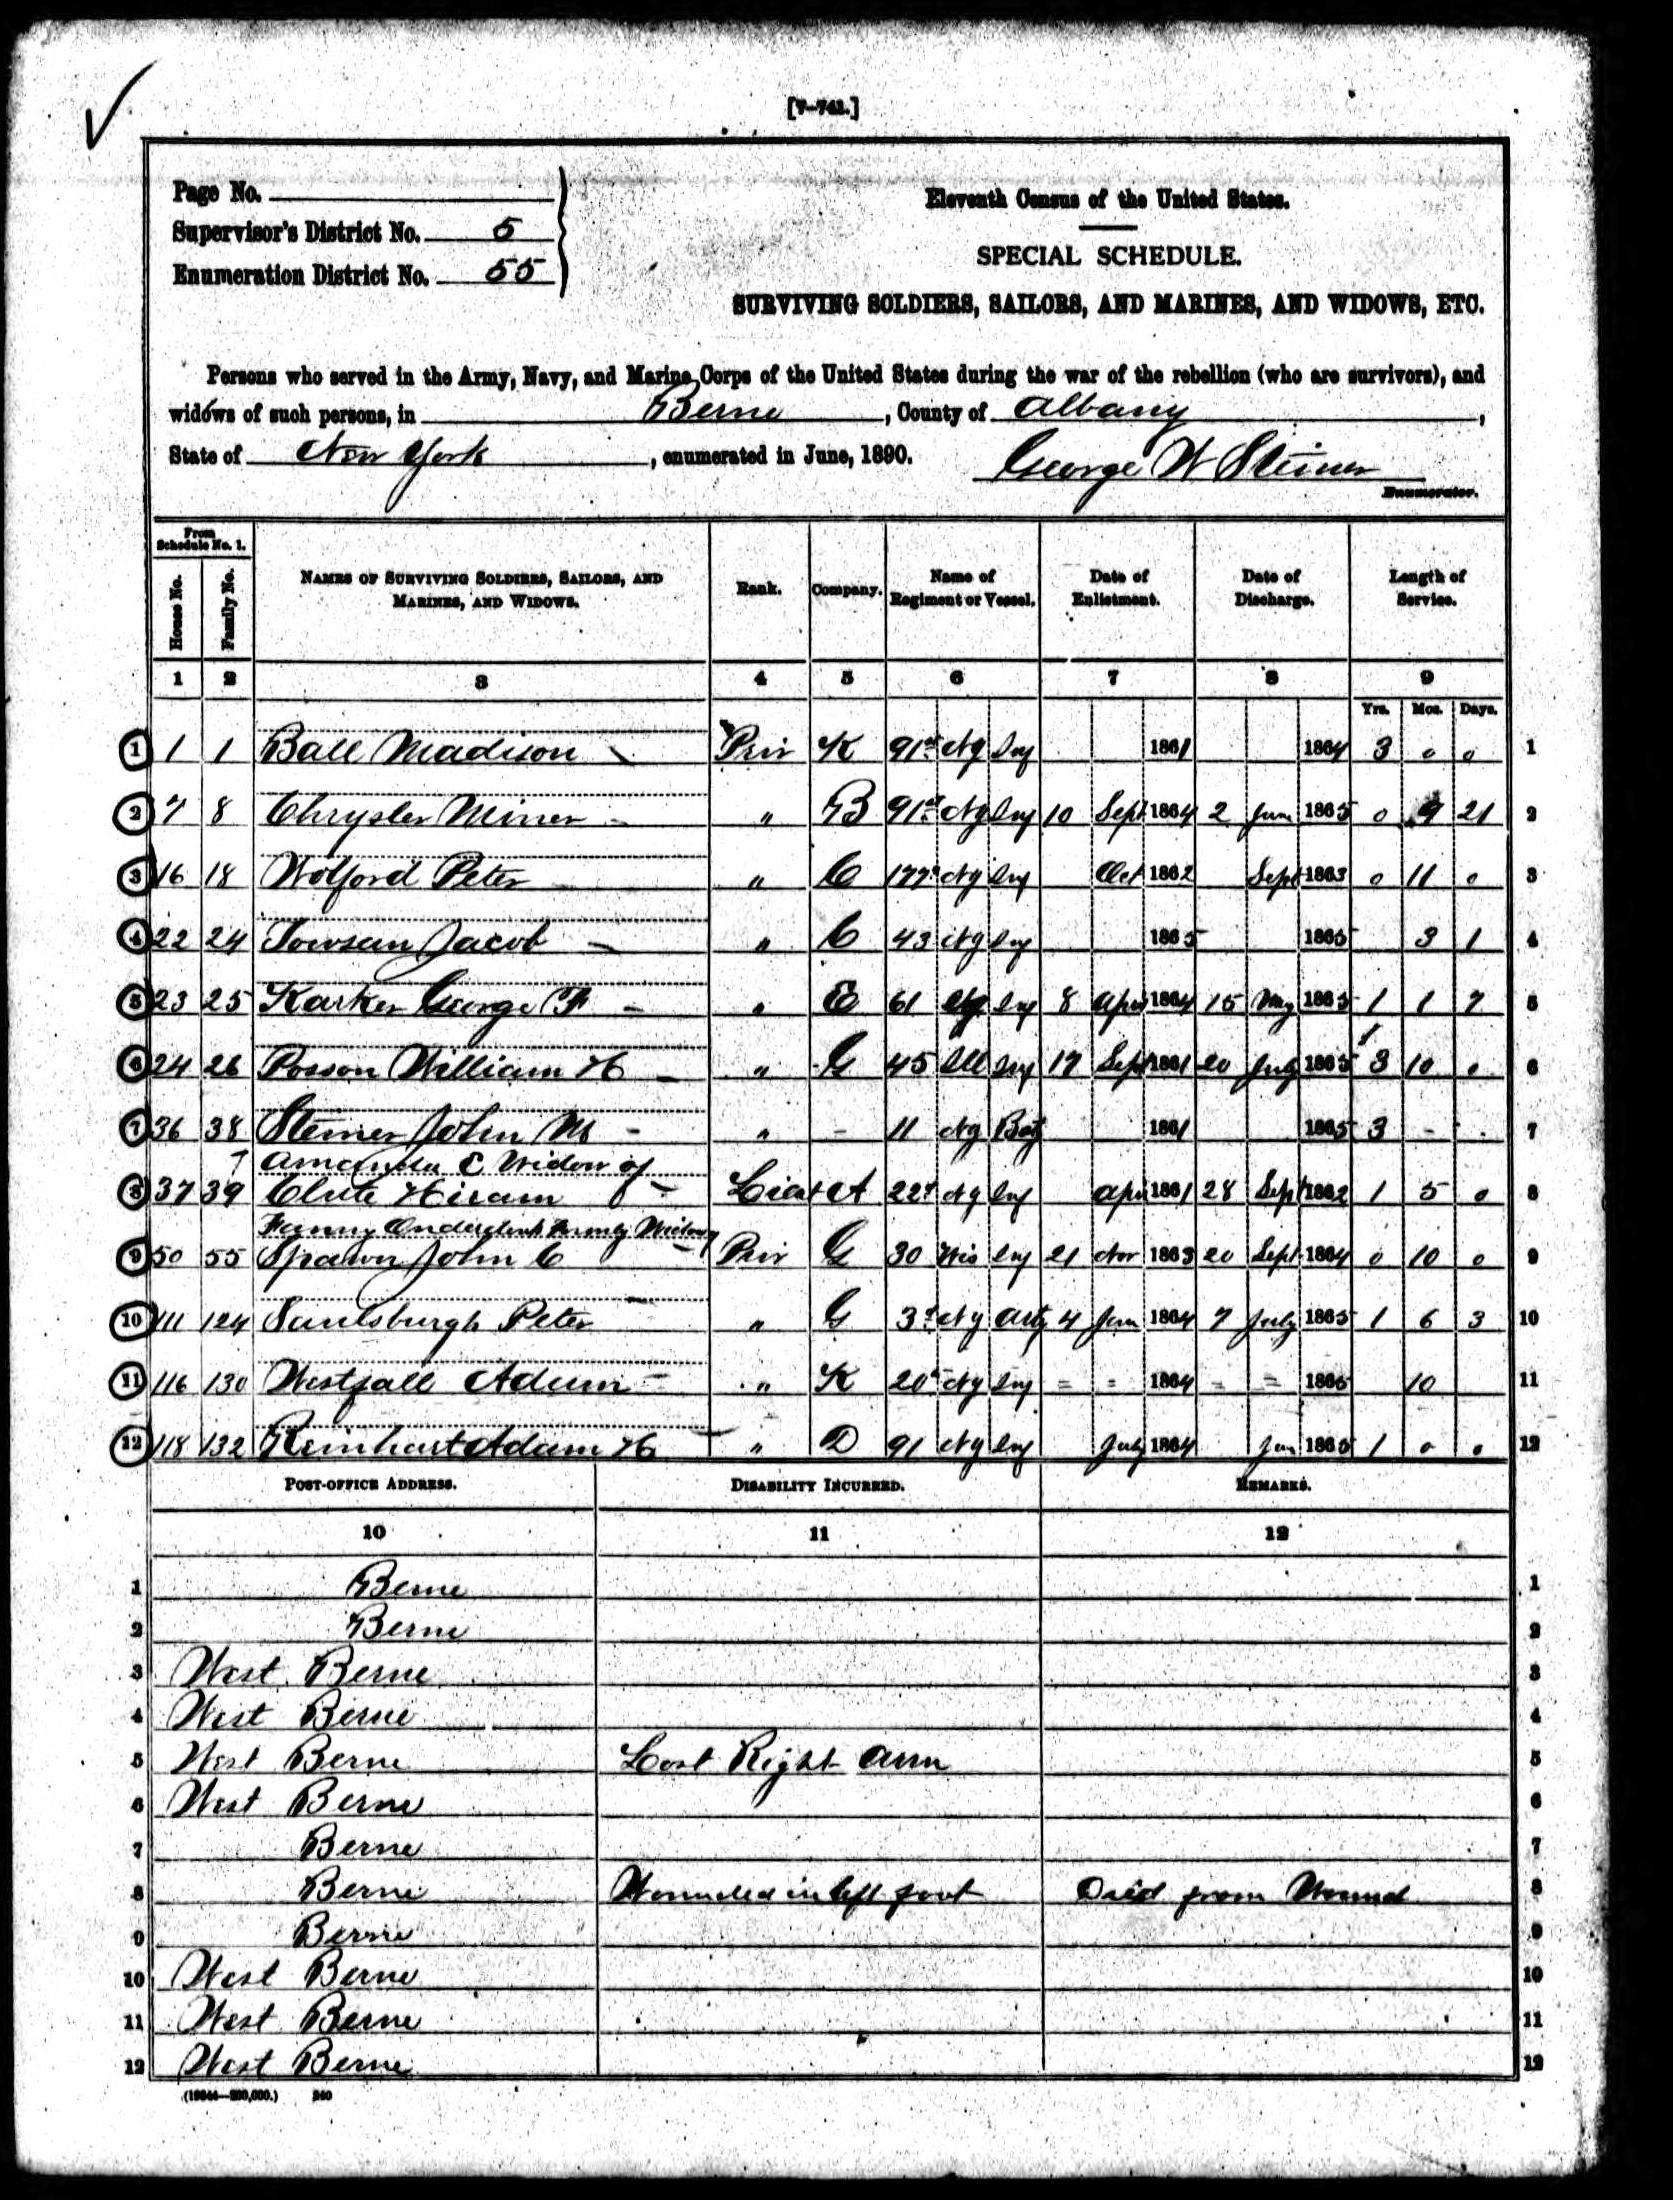 [7-741.]
Page No.
Supervisor's District No. 5
Enumeration District No. 55
Eleventh Census of the United States.
SPECIAL SCHEDULE.
SURVIVING SOLDIERS, SAILORS, AND MARINES, AND WIDOWS, ETC.
Persons who served in the Army, Navy, and Marine Corps of the United States during the war of the rebellion (who are survivors), and
widows of such persons, in Berne, County of Albany,
State of New York, enumerated in June, 1890. George W Steiner
Enumerator.
From Schedule No. 1.
House No. Family No. NAMES OF SURVIVING SOLDIERS, SAILORS, AND MARINES, AND WIDOWS. Rank. Company. Name of Regiment or Vessel. Date of Enlistment. Date of Discharge. Length of Service.
1 2 3 4 5 6 7 8 9
Yrs. Mos. Days.
1 1 1 Ball Madison Priv K 91st Ny Inf 1861 1864 3 0 0 1
2 7 8 Chrysler Miner " B 91st Ny Inf 10 Sept 1864 2 Jun 1865 0 9 21 2
3 16 18 Wolford Peter " C 177 Ny Inf Oct 1862 Sept 1863 0 11 0 3
4 22 24 Jacob " C 43 Ny Inf 1865 1865 3 1 4
5 23 25 Karker George F " E 61 Ny Inf 8 Apr 1864 15 May 1865 1 1 7 5
6 24 26 Posson William H " G 45 Ill Inf 17 Sept 1861 20 July 1865 3 10 0 6
7 36 38 Steiner John M " - 11 Ny Bat 1861 1865 3 - - 7
Amanda C Widow of
8 37 39 Clute Hiram Lieut A 22d Ny Inf Apr 1861 28 Sept 1862 1 5 0 8
Fanny Formerly Widow
9 50 55 Spawn John C Priv G 30 Wis Inf 21 Nov 1863 20 Sept 1864 0 10 0 9
10 111 124 Saulsburgh Peter " G 3d Ny Arty 4 Jan 1864 7 July 1865 1 6 3 10
11 116 130 Westfall Adam " K 20th Ny Inf = = 1864 = = 1865 10 11
12 118 132 Reinhart Adam H " D 91 Ny Inf July 1864 Jun 1865 1 0 0 12
POST-OFFICE ADDRESS. DISABILITY INCURRED. REMARKS.
10 11 12
1 Berne 1
2 Berne 2
3 West Berne 3
4 West Berne 4
5 West Berne Lost Right Arm 5
6 West Berne 6
7 Berne 7
8 Berne Wounded in left foot Died from Wound 8
9 Berne 9
10 West Berne 10
11 West Berne 11
12 West Berne 12